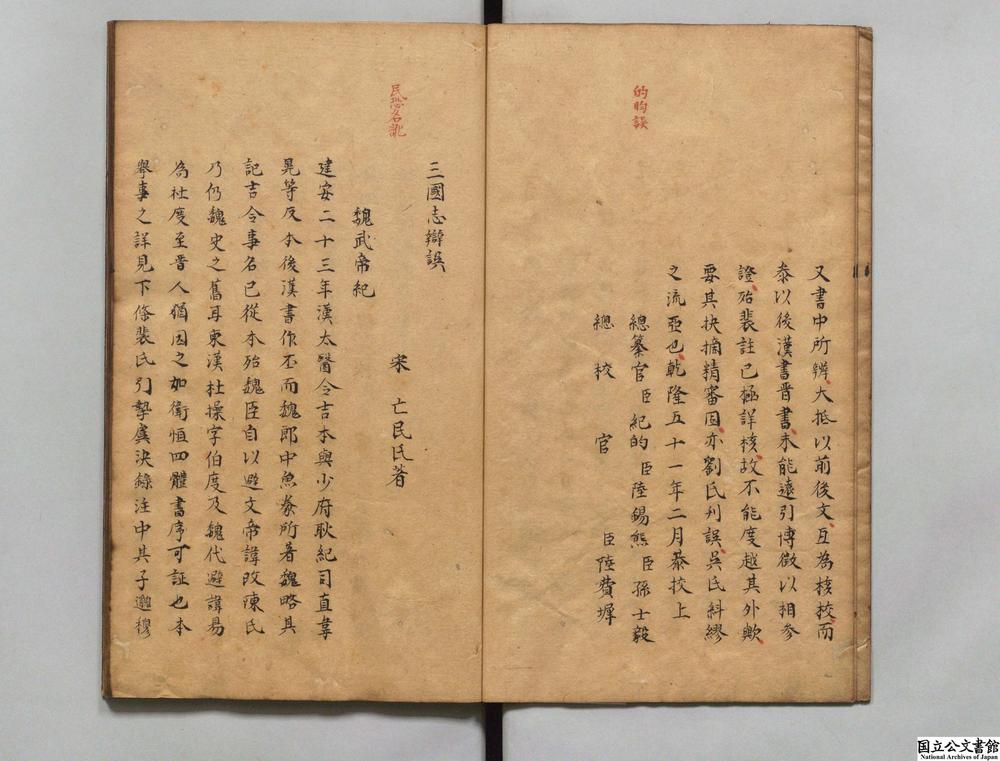 的昀誤
又書中所辨大抵以前後文互為核挍而
泰以後漢書晋書未能遠引博徵以相參
證殆裴註已極詳核故不能度越其外歟
要其抉摘精審固亦劉氏刋誤吳氏糾繆
之流亞也乾隆五十一年二月恭挍上
總纂官臣紀的臣陸錫熊臣孫士毅
總校官臣陸費墀
民恐名訛
三國志辯誤
宋亡民氏著
魏武帝紀
建安二十三年漢太醫令吉本與少府耿紀司直韋
晃等反本後漢書作丕而魏郎中魚豢所著魏略具
記吉令事名已從本殆魏臣自以避文帝諱改陳氏
乃仍魏史之舊耳東漢杜操字伯度及魏代避諱易
為杜度至晋人猶因之如衛恒四體書序可証也本
舉事之詳見下條裴氏引摯虞決錄注中其子邈穆
国立公文書館
National Archives of Japan